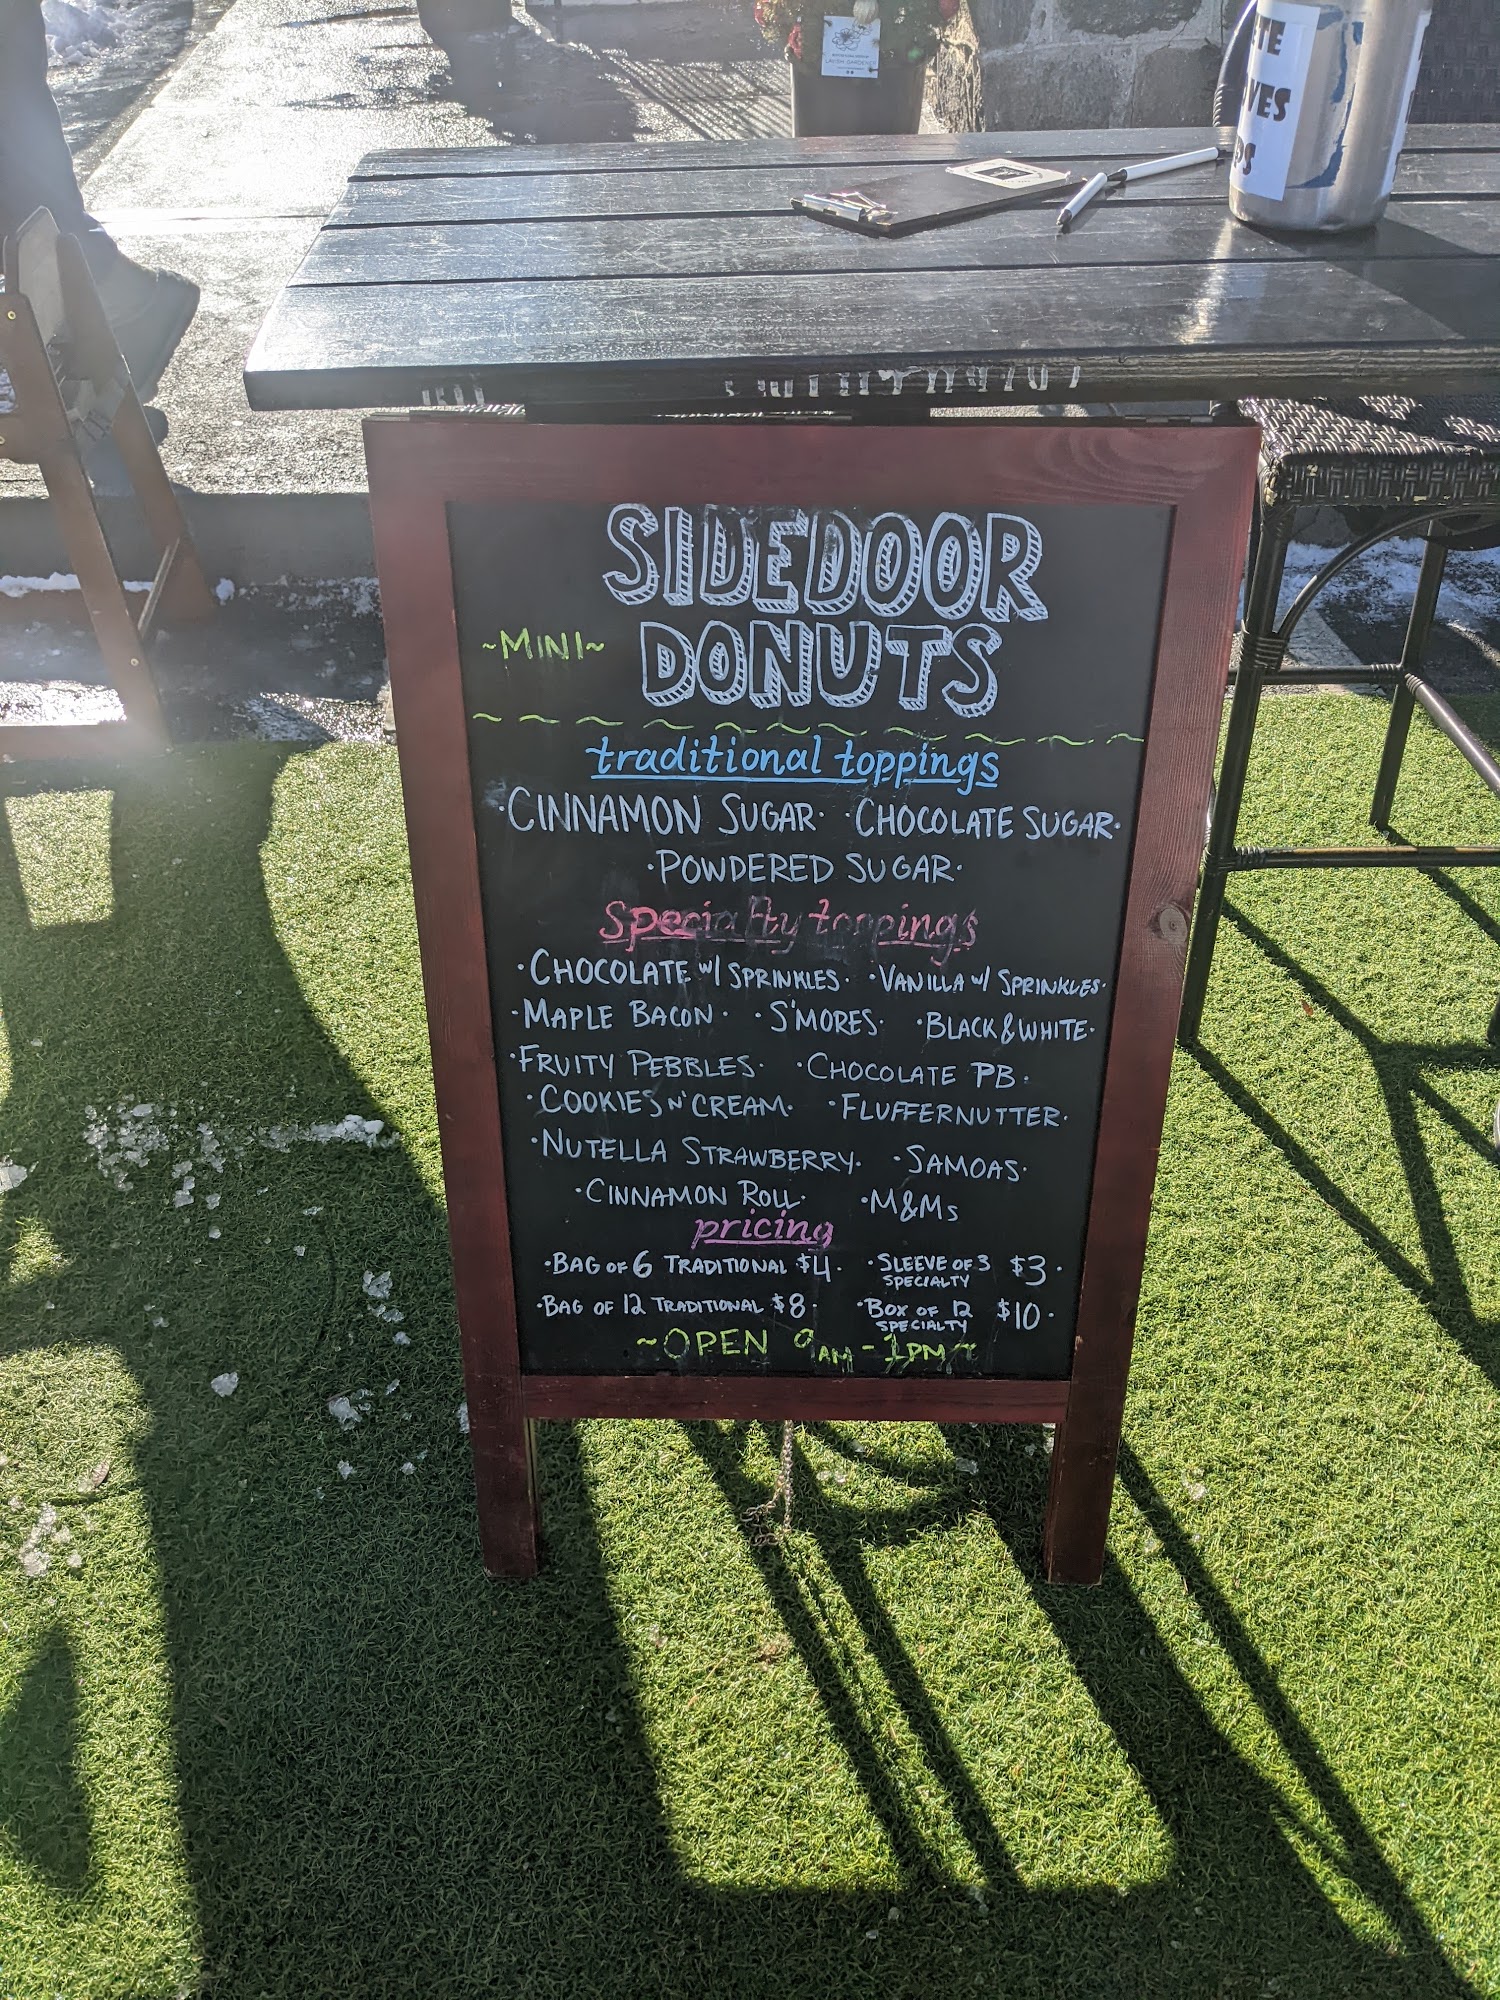 LAVISH GARDENER
SIDEDOOR
~MINI~ DONUTS
traditional toppings
·CINNAMON SUGAR· ·CHOCOLATE SUGAR·
·POWDERED SUGAR·
Specialty toppings
·CHOCOLATE w/ SPRINKLES· ·VANILLA w/ SPRINKLES·
·MAPLE BACON· ·S'MORES· ·BLACK&WHITE·
·FRUITY PEBBLES· ·CHOCOLATE PB·
·COOKIES N' CREAM· ·FLUFFERNUTTER·
·NUTELLA STRAWBERRY· ·SAMOAS·
·CINNAMON ROLL· ·M&Ms
pricing
·BAG OF 6 TRADITIONAL $4· ·SLEEVE OF 3 SPECIALTY $3·
·BAG OF 12 TRADITIONAL $8· ·BOX OF 12 SPECIALTY $10·
~OPEN 9AM-1PM~